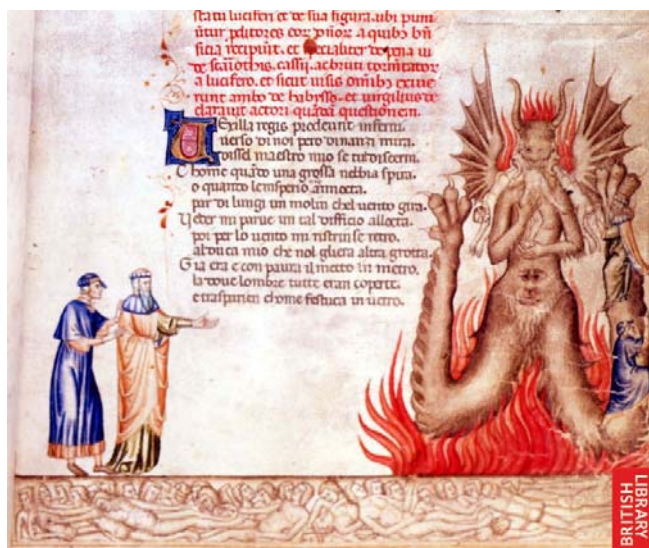 sta tu luciferi et de sua figura. ubi puni
untur pditores eor dñor a quibȝ bñ
ficia recipiūt. et specialiter de pena iu
de scariothis. cassij. ac bruti tormētator
a lucifero. et sicut uisis omībȝ exiue
runt ambo de habysso. et uirgilius de
clarauit actori quādā questionem.
Vexilla regis prodeunt inferni.
uerso di noi pero dinanzi mira.
dissel maestro mio se tu discerni.
Chome quādo una grossa nebbia spira.
o quanto lemsperio annocta.
par di lungi un molin chel uento gira.
Veder mi parue un tal difficio allocta.
poi per lo uento mi ristrinse retro.
al duca mio che nol gliera altra grotta.
Gia era e con paura il metto in metro.
la doue lombre tutte eran coperte.
e trasparien chome festuca in uetro.
BRITISH
LIBRARY